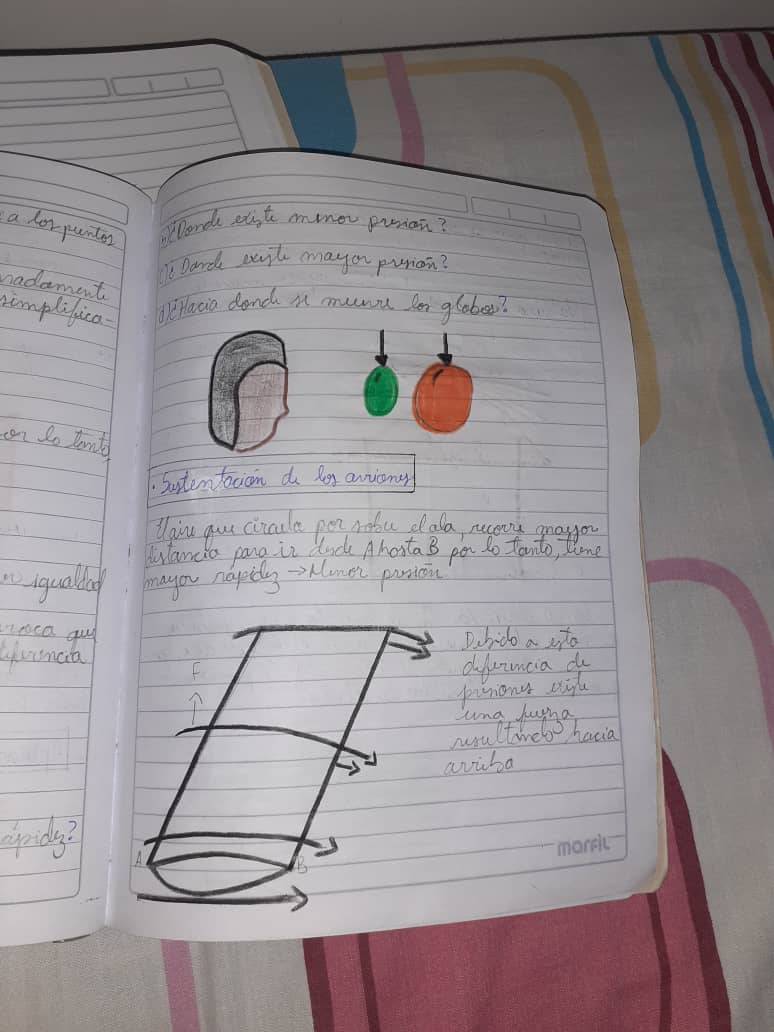 a los puntos
nadamente
simplifica-
or lo tanto
igualdad
que
diferencia
rápidez?
b) ¿Donde existe menor presión?
c) ¿Donde existe mayor presión?
d) ¿Hacia donde se mueve los globos?
. Sustentación de los aviones
El aire que circula por sobre el ala, recorre mayor
distancia para ir desde A hasta B por lo tanto, tiene
mayor rápidez → Menor presión
F
A
B
Debido a esta
diferencia de
presiones existe
una fuerza
resultando hacia
arriba
marfil